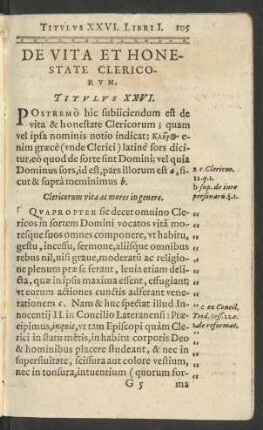 TITVLVS XXVI. LIBRI I. 105
DE VITA ET HONE-
STATE CLERICO-
RVM.
TITVLVS XXVI.
POSTREMò hic subiiciendum est de
vita & honestate Clericorum; quam
vel ipsa nominis notio indicat: Κλῆρ
enim græcè (vnde Clerici) latinè sors dici-
tur, eò quod de sorte sint Domini; vel quia
Dominus sors, id est, pars illorum est a, si-
cut & suprà meminimus b.
a c. Clericus.
12. q. 1.
b sup. de iure
personarū. §. 1.
Clericorum vita ac mores in genere.
QVAPROPTER sic decet omnino Cle-
ricos in sortem Domini vocatos vitā mo-
résque suos omnes componere, vt habitu,
gestu, incessu, sermone, aliisque omnibus
rebus nil, nisi graue, moderatū ac religio-
ne plenum præ se ferant, leuia etiam deli-
cta, quæ in ipsis maxima essent, effugiant;
vt eorum actiones cunctis adferant vene-
rationem c. Nam & huc spectat illud In-
nocentij II. in Concilio Lateranensi: Præ-
cipimus, inquit, vt tam Episcopi quàm Cle-
rici in statu mētis, in habitu corporis Deo
& hominibus placere studeant, & nec in
superfluitate, scissura aut colore vestium,
nec in tonsura, intuentium (quorum for-
c ex Concil.
Trid. sess. 22.
de reformat.
G 5 ma